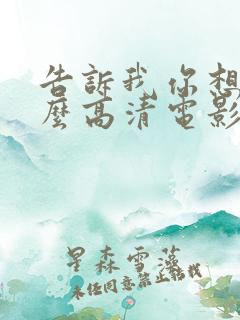 告訴我你想
麼高清電影
星森雪藻
未任同意禁止轉載